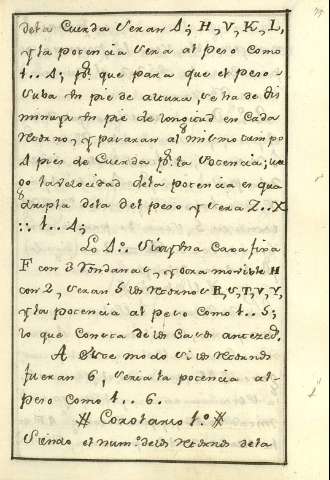 dela Cuerda seran 4; H, V, K, L,
y la potencia sera al peso como
1.. 4; pq. que para que el peso
suba un pie de altura, se ha de dis
minuyr un pie de longitud en Cada
retorno, y pasaran al mismo tiempo
4 pies de Cuerda pr. la potencia; lue
go la velocidad dela potencia es qua
drupla dela del peso y sera Z..X
:: 1.. 4;
Lo 4º. Si una Caxa fixa
F con 3 Rondanas, y otra movible H
con 2, seran 5 los retornos R, S, T, V, Y,
y la potencia al peso como 1.. 5;
lo que consta de los Casos anteced.
A este modo si los retornos
fueran 6, seria la potencia al
peso como 1.. 6.
# Corolario 1.º #
Siendo el num.º delos retornos dela